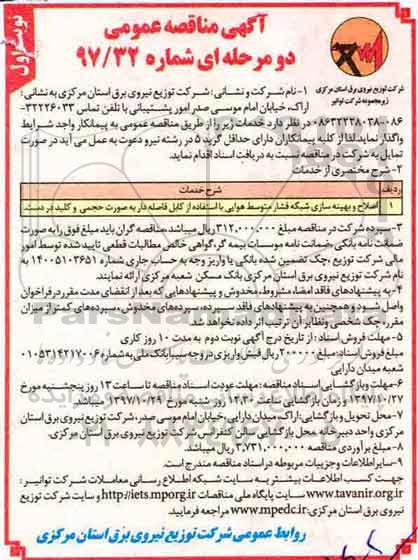 نوبت اول
آگهی مناقصه عمومی
دو مرحله ای شماره ۹۷/۳۲
شرکت توزیع نیروی برق استان مرکزی
زیرمجموعه شرکت توانیر
۱- نام شرکت و نشانی: شرکت توزیع نیروی برق استان مرکزی به نشانی:
اراک، خیابان امام موسی صدر امور پشتیبانی با تلفن تماس ۳۲۲۲۶۰۳۳-
۰۸۶۳۲۲۳۸۰۳۸-۰۸۶ در نظر دارد خدمات زیر را از طریق مناقصه عمومی به پیمانکار واجد شرایط
واگذار نماید. لذا از کلیه پیمانکاران دارای حداقل گرید ۵ در رشته نیرو دعوت به عمل می آید در صورت
تمایل به شرکت در مناقصه نسبت به دریافت اسناد اقدام نماید.
۲- شرح مختصری از خدمات
ردیف شرح خدمات
۱ اصلاح و بهینه سازی شبکه فشار متوسط هوایی با استفاده از کابل فاصله دار به صورت حجمی و کلید در دست
۳- سپرده شرکت در مناقصه مبلغ ۳۱۲٬۰۰۰٬۰۰۰ ریال میباشد، مناقصه گران باید مبلغ فوق را به صورت
ضمانت نامه بانکی، ضمانت نامه موسسات بیمه گر، گواهی خالص مطالبات قطعی تایید شده توسط امور
مالی شرکت توزیع، چک تضمین شده بانکی یا واریز وجه به حساب جاری شماره ۱۴۰۰۵۱۰۳۶۵۱ به
نام شرکت توزیع نیروی برق استان مرکزی بانک مسکن شعبه مرکزی ارائه نمایند.
۴- به پیشنهادهای فاقد امضاء، مشروط، مخدوش و پیشنهادهایی که بعد از انقضای مدت مقرر در فراخوان
واصل شود و همچنین به پیشنهادهای فاقد سپرده، سپرده‌های مخدوش، سپرده‌های کمتر از میزان
مقرر، چک شخصی و نظایر آن ترتیب اثر داده نخواهد شد.
۵- مهلت فروش اسناد: از تاریخ درج آگهی نوبت دوم به مدت ۱۰ روز کاری
مبلغ فروش اسناد: مبلغ ۲۰۰۰۰۰ ریال فیش واریزی در وجه سیبا بانک ملی به شماره ۰۱۰۵۳۱۴۲۱۷۰۰۶
شعبه میدان دارایی.
۶- مهلت و بازگشایی اسناد مناقصه: مهلت عودت اسناد مناقصه تا ساعت ۱۳ روز پنجشنبه مورخ
۱۳۹۷/۱۰/۲۷ و زمان بازگشایی ساعت ۱۲:۳۰ روز شنبه مورخ ۱۳۹۷/۱۰/۲۹ میباشد.
۷- محل تحویل و بازگشایی: اراک، میدان دارایی، خیابان امام موسی صدر، شرکت توزیع نیروی برق استان
مرکزی واحد دبیرخانه. محل بازگشایی سالن کنفرانس شرکت توزیع نیروی برق استان مرکزی.
۸- مبلغ برآوردی مناقصه ۳٬۷۳۱٬۰۰۰٬۰۰۰ ریال میباشد.
۹- سایر اطلاعات و جزییات مربوطه در اسناد مناقصه مندرج است.
جهت کسب اطلاعات بیشتر به سایت شبکه اطلاع رسانی معاملات شرکت توانیر:
www.tavanir.org.ir سایت پایگاه ملی مناقصات http://iets.mporg.ir و سایت شرکت توزیع
نیروی برق: www.mpedc.ir مراجعه فرمایید.
روابط عمومی شرکت توزیع نیروی برق استان مرکزی